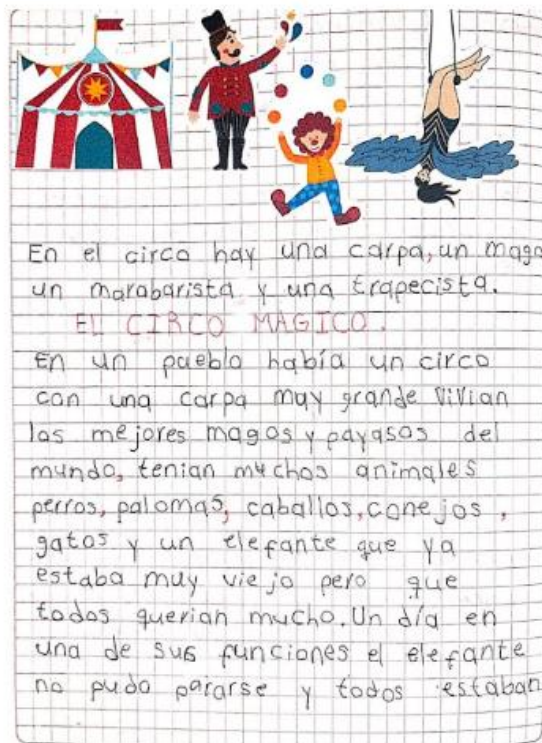 En el circo hay una carpa, un mago
un marabarista y una trapecista.
EL CIRCO MAGICO.
En un pueblo había un circo
con una carpa muy grande Vivian
los mejores magos y payasos del
mundo, tenian muchos animales
perros, palomas, caballos, conejos,
gatos y un elefante que ya
estaba muy viejo pero que
todos querian mucho. Un día en
una de sus funciones el elefante
no pudo pararse y todos estaban